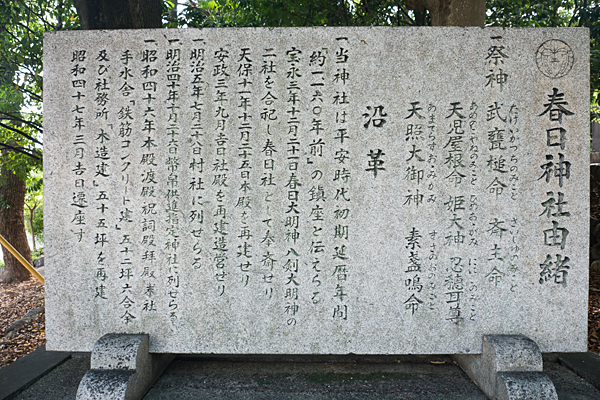 春日神社由緒
一祭神 武甕槌命 斎主命
たけみかづちのみこと
天児屋根命 姫大神 忍瀧耳尊
あめのこやねのみこと
天照大御神 素盞鳴命
あまてらすおおみかみ すさのおのみこと
沿革
一当神社は平安時代初期延暦年間
「約一二六〇年前」の鎮座と伝えらる
宝永三年十二月二十一日春日大明神八剣大明神の
二社を合祀し春日社として奉斎せり
天保十一年十二月二十五日本殿を再建せり
安政三年九月吉日社殿を再建造営せり
一明治五年七月二十八日村社に列せらる
一明治四十年十月二十六日幣帛供進指定神社に列せらる
一昭和四十六年本殿渡殿祝詞殿拝殿末社
手水舎「鉄筋コンクリート建」五十二坪六合余
及び社務所「木造建」五十五坪を再建
昭和四十七年三月吉日遷座す